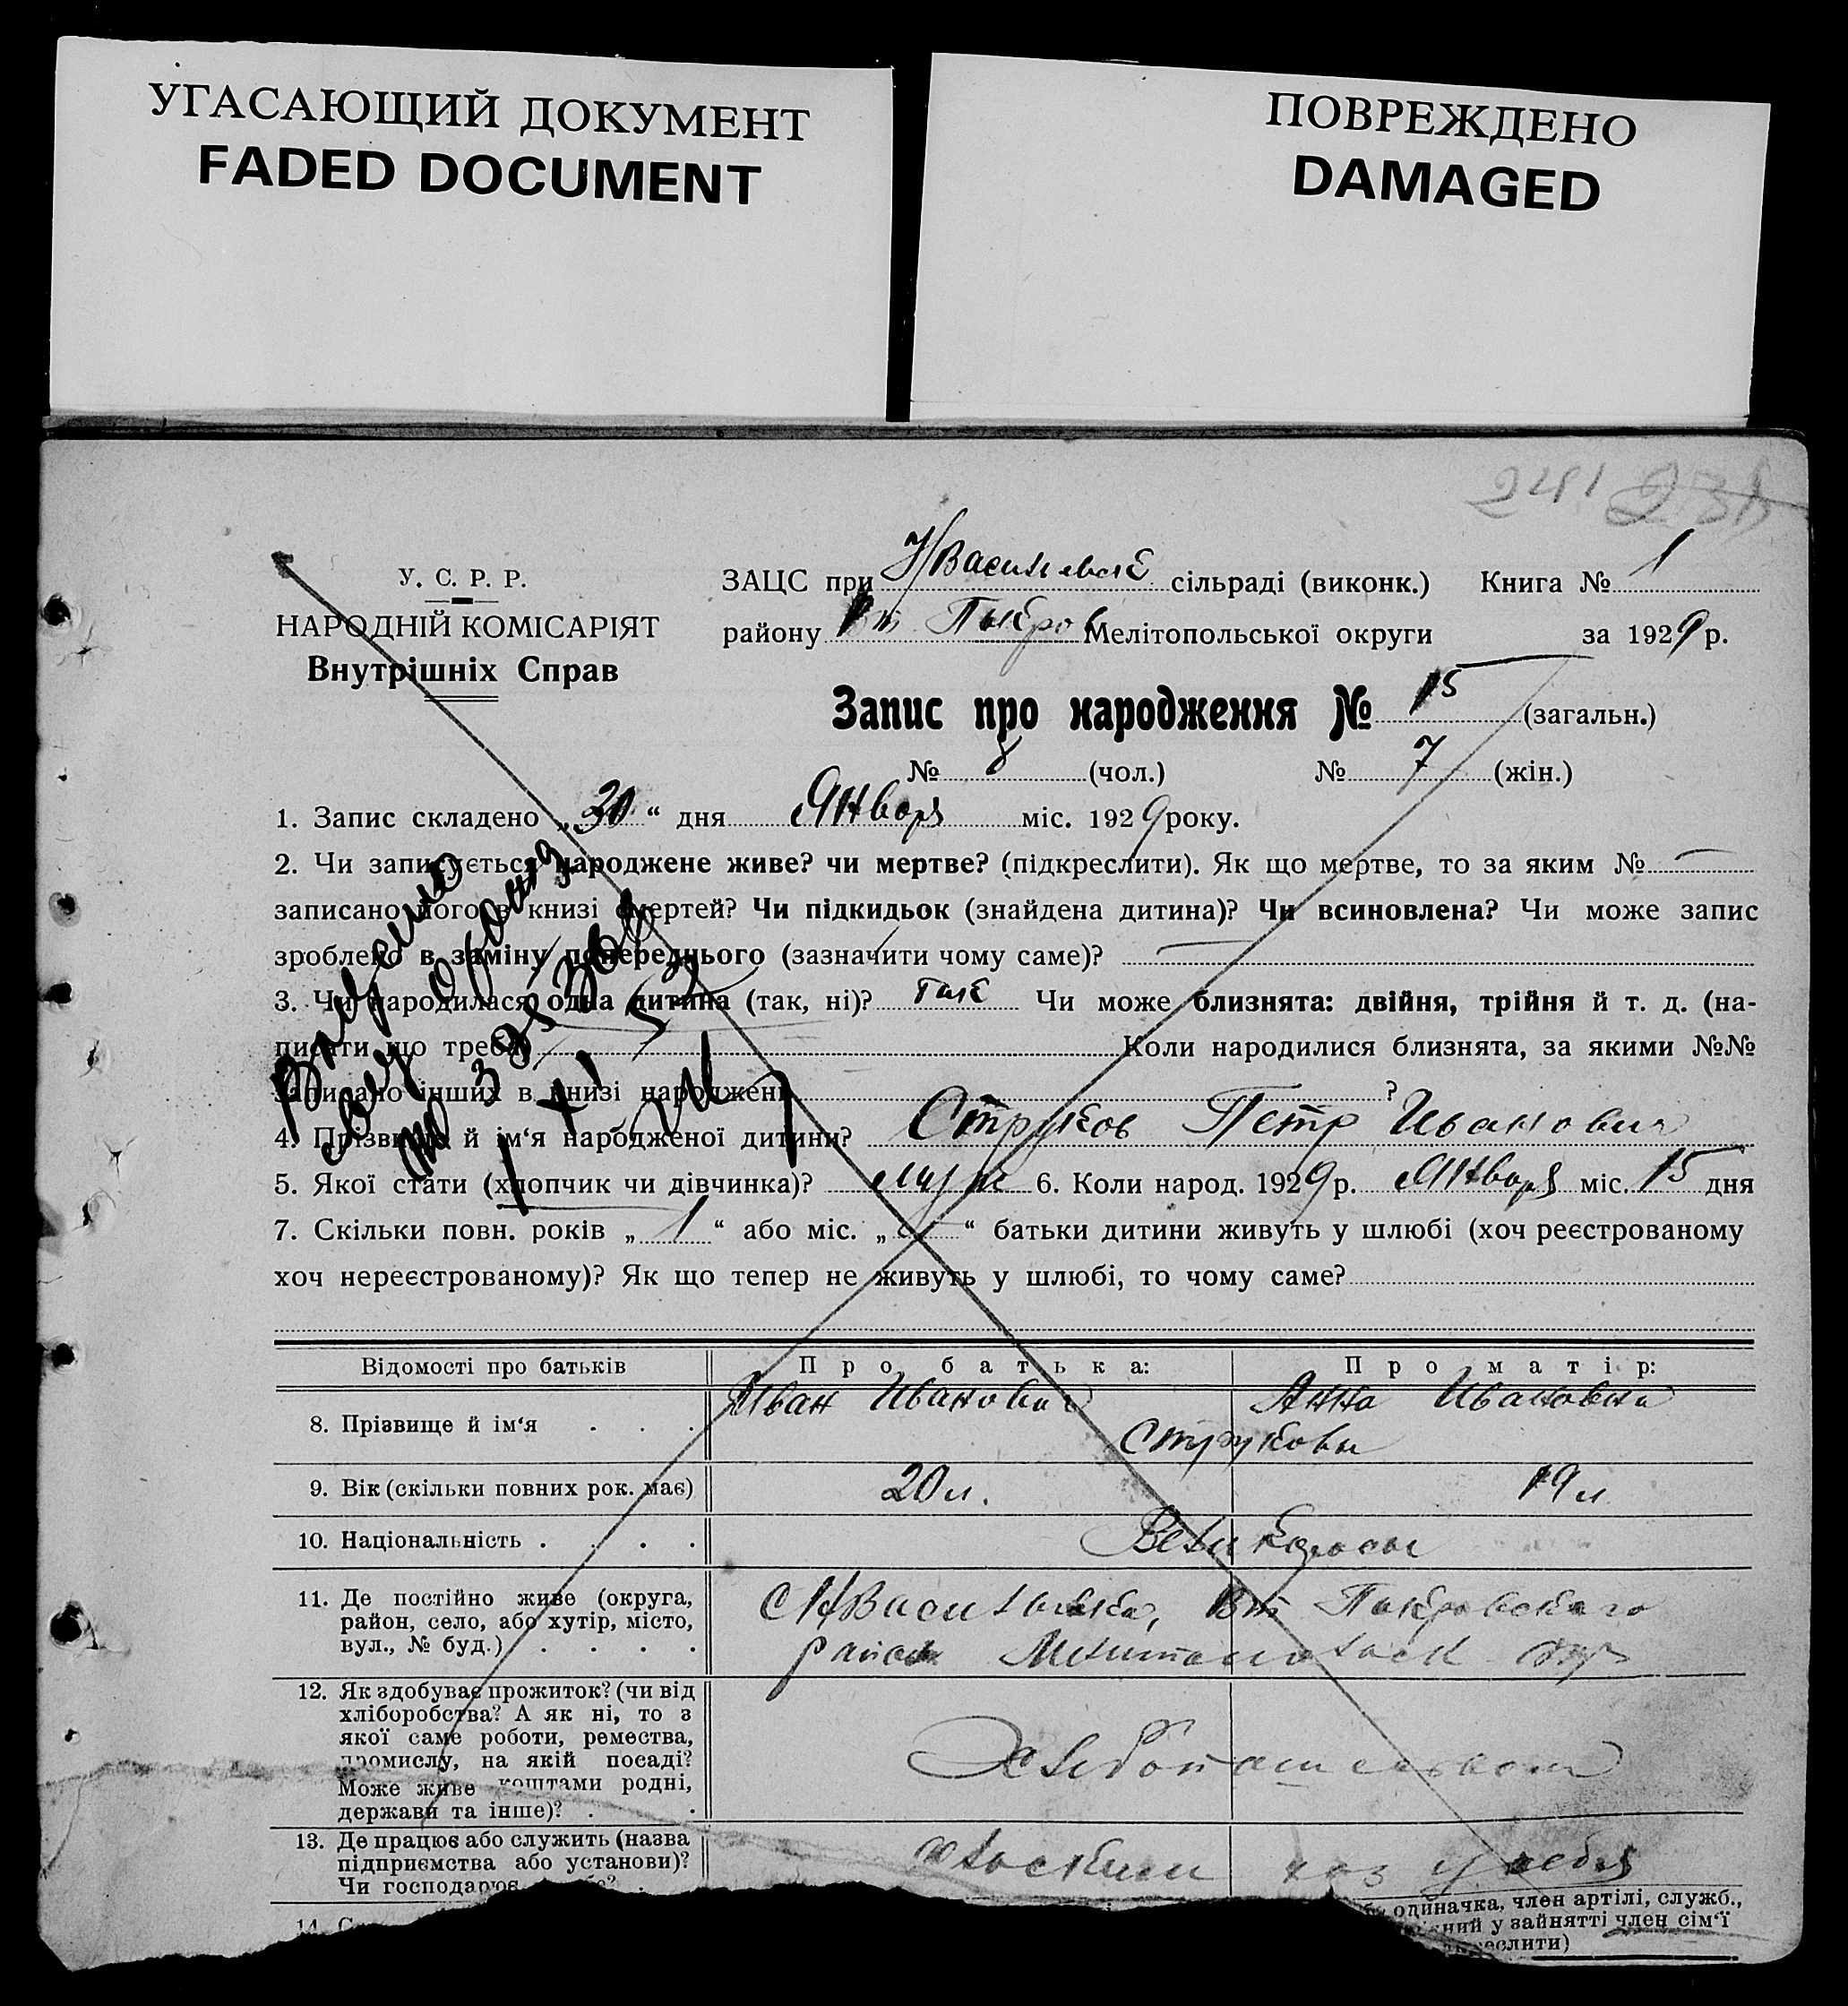 УГАСАЮЩИЙ ДОКУМЕНТ
FADED DOCUMENT
ПОВРЕЖДЕНО
DAMAGED
241
У. С. Р. Р.
НАРОДНІЙ КОМІСАРІЯТ
Внутрішніх Справ
ЗАЦС при Н/Васильевск сільраді (виконк.) Книга № 1
району Покров Мелітопольської округи за 1929 р.
Запис про народження № 15 (загальн.)
№ 8 (чол.) № 7 (жін.)
1. Запис складено „30“ дня Января міс. 1929 року.
2. Чи записується народжене живе? чи мертве? (підкреслити). Як що мертве, то за яким №
записано його в книзі смертей? Чи підкидьок (знайдена дитина)? Чи всиновлена? Чи може запис
зроблено в заміну попереднього (зазначити чому саме)?
3. Чи народилася одна дитина (так, ні)? так Чи може близнята: двійня, трійня й т. д. (на-
писати що треба) Коли народилися близнята, за якими №№
записано інших в книзі народжень ?
4. Прізвище й ім‘я народженої дитини? Струков Петр Иванович
5. Якої стати (хлопчик чи дівчинка)? муж 6. Коли народ. 1929 р. Января міс. 15 дня
7. Скільки повн. років „1“ або міс. „ “ батьки дитини живуть у шлюбі (хоч реєстрованому
хоч нереєстрованому)? Як що тепер не живуть у шлюбі, то чому саме?
Відомості про батьків Про батька: Про матір:
8. Прізвище й ім‘я . . . Иван Иванович Анна Ивановна
Струковы
9. Вік (скільки повних рок. має) 20 л. 19 л
10. Національність . . . . Великоросы
11. Де постійно живе (округа,
район, село, або хутір, місто,
вул., № буд.) . . . .
С Н/Васильевка, Вт Покровского
район Мелитопольск окр
12. Як здобуває прожиток? (чи від
хліборобства? А як ні, то з
якої саме роботи, ремества,
промислу, на якій посаді?
Може живе коштами родні,
держави та інше)? . .
Хлебопашеством
13. Де працює або служить (назва
підприємства або установи)?
Чи господарює
сельским хоз у себя
14.
одиначка, член артілі, служб.,
у зайнятті член сім‘ї